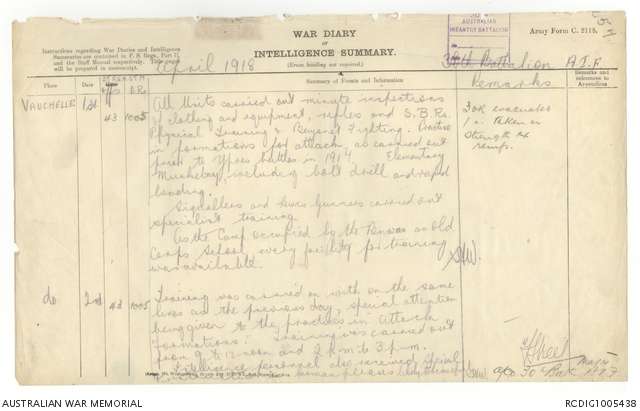 WAR DIARY
OF
INTELLIGENCE SUMMARY.
(Erase heading not required.)
Army Form C. 2118.
Instructions regarding War Diaries and Intelligence
Summaries are contained in F. S. Regs., Part II.
and the Staff Manual respectively. Title pages
will be prepared in manuscript.
AUSTRALIAN
INFANTRY BATTALION
April 1918
30th Battalion A.I.F
Place
Date
Summary of Events and Information
Remarks and
references to
Appendices
STRENGTH
Offs O.Rs.
Remarks
VAUCHELLE 1st 43 1005 All Units carried out minute inspections
of clothing and equipment, rifles and S.B.Rs.
Physical Training & Bayonet Fighting. Practice
in formations for attack, as carried out
prior to Ypres battles in 1917. Elementary
Musketry, including bolt drill and rapid
loading.
Signallers and Lewis Gunners carried out
specialist training.
As the Camp occupied by the Bn was an old
Corps School every facility for training
was available.
3 OR evacuated
1 " Taken on
Strength
do 2nd 43 1005 Training was carried on with on the same
lines as the previous day, special attention
being given to the practices in Attack
Formations. Training was carried out
from 9 to 12 noon and 2 p.m to 3 p.m.
Intelligence personnel also received special
Major
30 Batn. A.I.F
AUSTRALIAN WAR MEMORIAL
RCDIG1005438